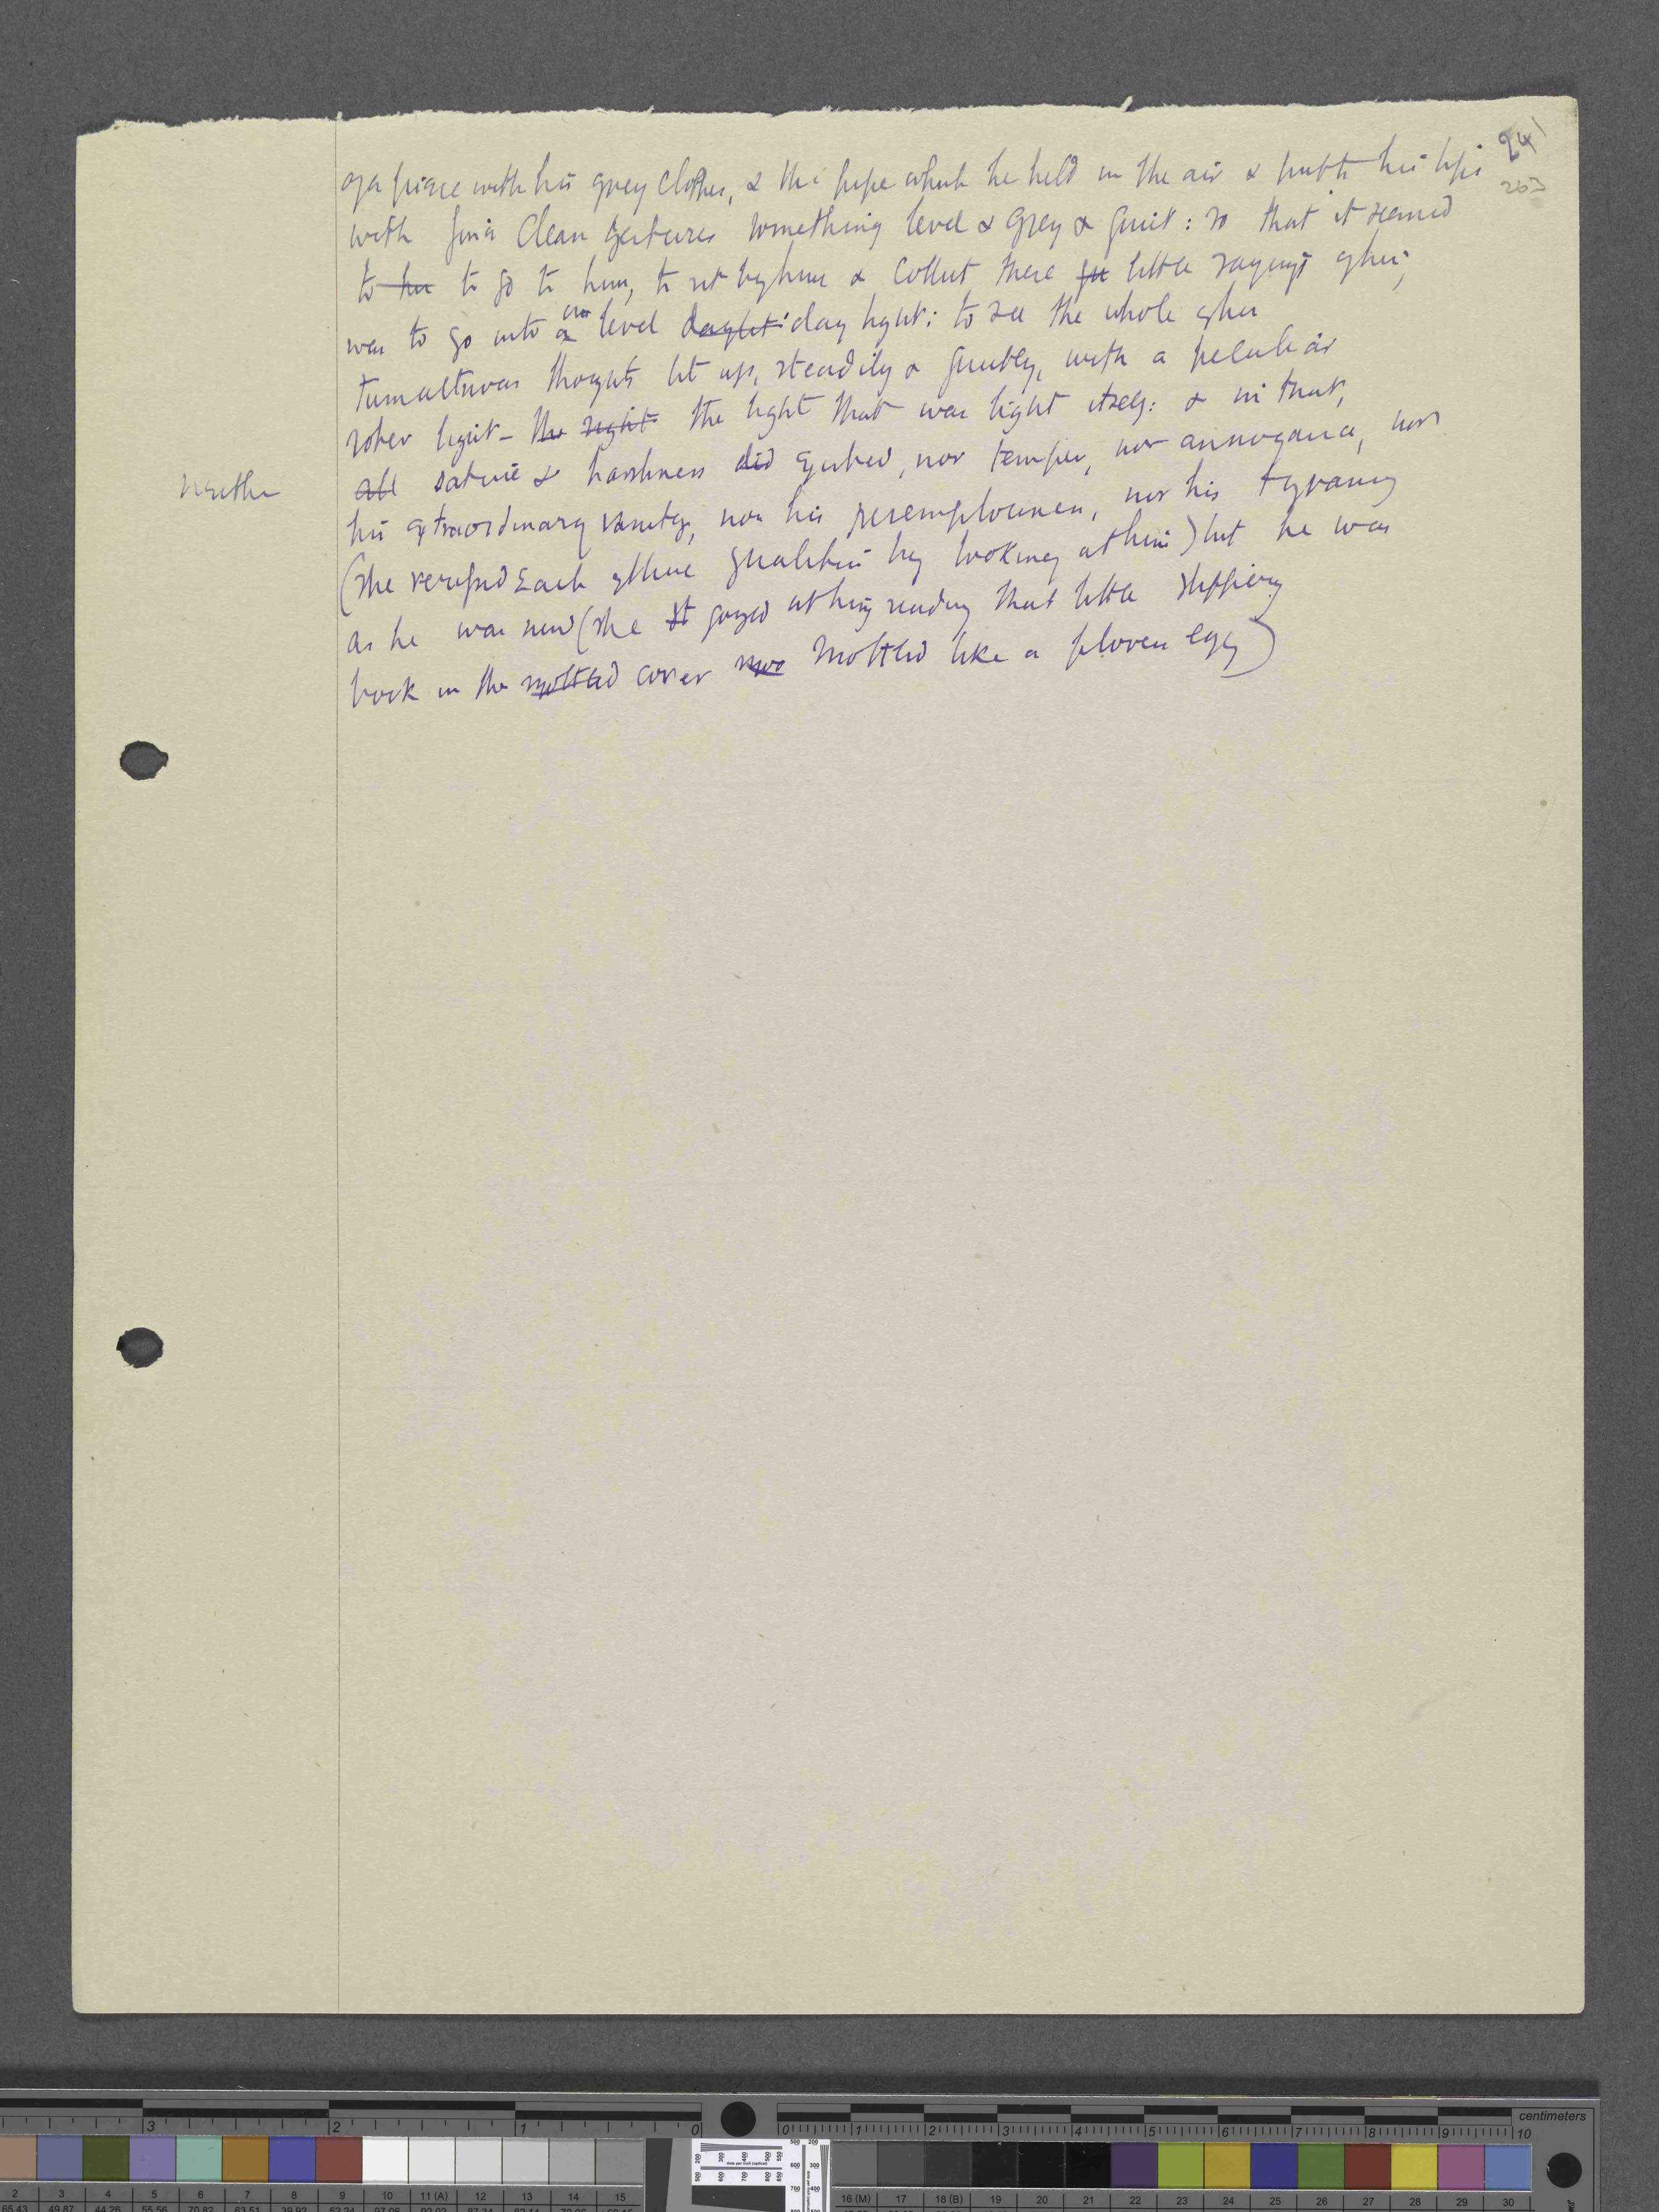 241
263
of a piece with his grey clothes, & the pipe which he held in the air & put to his lips
with fine clean gestures something level & grey & quiet: so that it seemed
to her to go to him, to sit by him & collect these little sayings of his,
was to go into a one level daylight day light: to see the whole of her
tumultuous thoughts lit up, steadily & quietly, with a peculiar
sober light - the sight the light that was light itself: & in that,
neither
all satire & harshness did existed, nor temper, nor annoyance, nor
his extraordinary vanity, nor his peremptoriness, nor his tyranny
(she verified each of these qualities by looking at him) but he was
as he was now (she st gazed at him reading that little slippery
book in the mottled cover mottled like a plovers egg)
3 2 1 0 0 1 2 3 4 5 6 7 8 9 10
centimeters
2 3 4 5 6 7 8 9 10 11 (A) 12 13 14 15 16 (M) 17 18 (B) 19 20 21 22 23 24 25 26 27 28 29 30